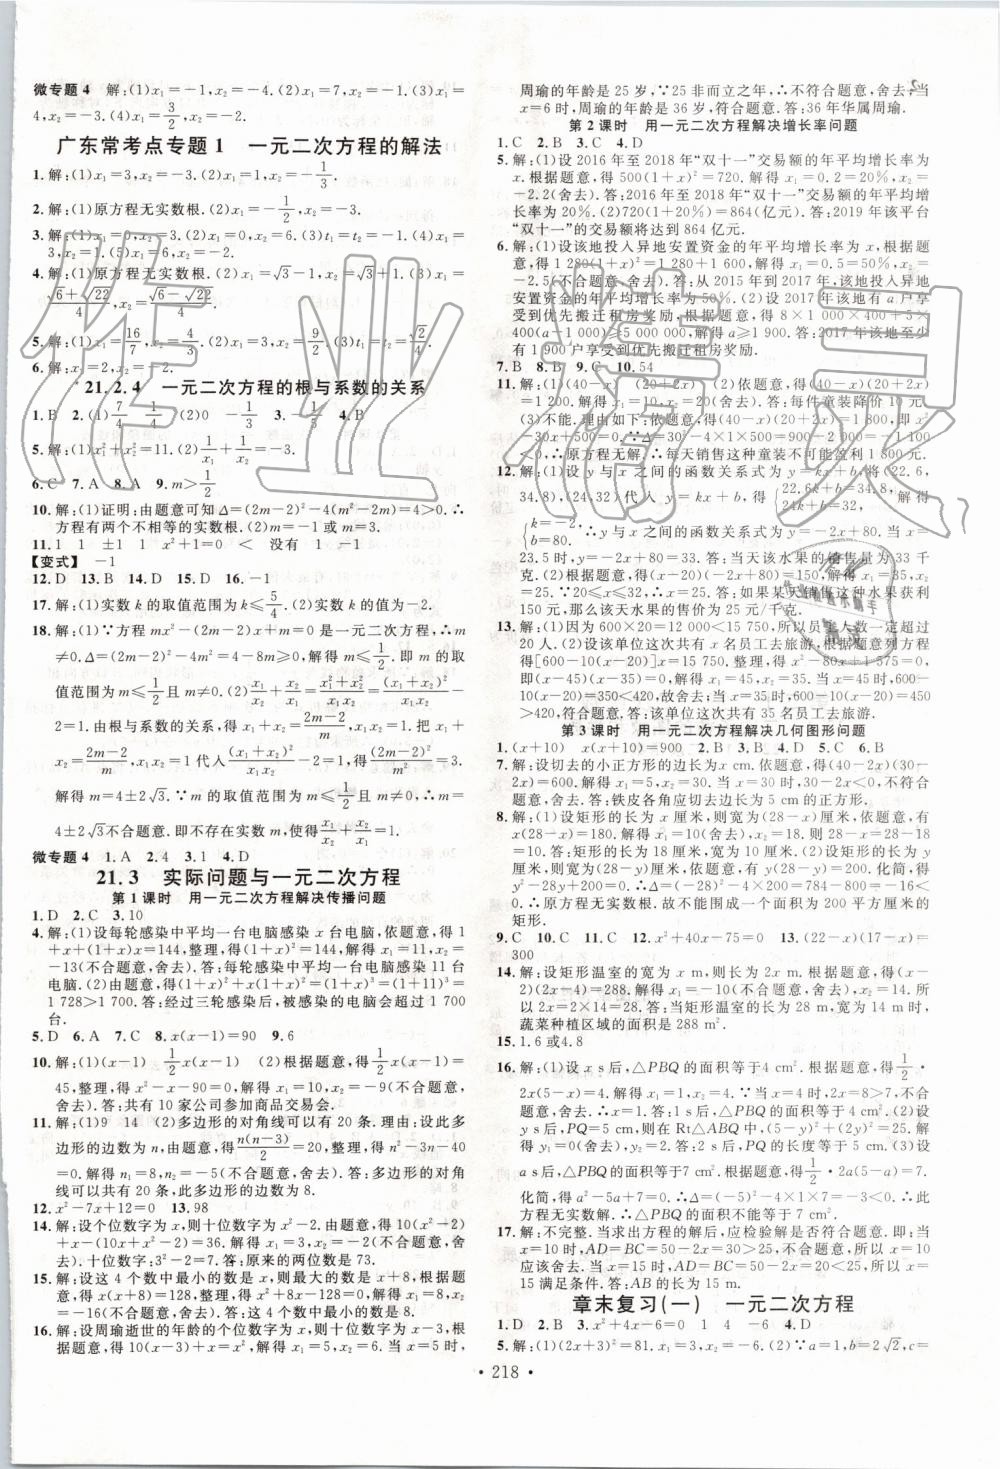 微专题4 解:(1)x₁=-1,x₂=3.(2)x₁=-4,x₂=3.(3)x₁=
4,x₂=-3.(4)x₁=3/2,x₂=-2.
广东常考点专题1 一元二次方程的解法
1.解:(1)x₁=3,x₂=-3.(2)x₁=1,x₂=-1/3.
2.解:(1)原方程无实数根.(2)x₁=-1/2,x₂=-3.
3.解:(1)x₁=9,x₂=-2.(2)x₁=0,x₂=6.(3)t₁=t₂=-1.(4)x₁=
3,x₂=1.(5)x₁=6,x₂=-1.
4.解:(1)原方程无实数根.(2)x₁=√3-1,x₂=-√3-1.(3)x₁=
(6+√22)/4,x₂=(6-√22)/4.
6.解:x₁=
21.2.4 一元二次方程的根与系数的关系
1.B 2.(1)7/4 -1/4 (2)0 -1/2 3.-1/4 4.B
5.解:(1)x₁²+x₂²=11.(2)1/x₁+1/x₂=
6.C 7.A 8.A 9.m>1/2
10.解:(1)证明:由题意可知Δ=(2m-2)²-4(m²-2m)=4>0.∴
方程有两个不相等的实数根.(2)m=-1或m=3.
11.1 1 ±1 1 x²+1=0 < 没有 1 -1
【变式】 -1
12.D 13.B 14.D 15.D 16.-1
17.解:(1)实数k的取值范围为k≤5/4.(2)实数k的值为-2.
18.解:(1)∵方程mx²-(2m-2)x+m=0是一元二次方程,∴m
≠0.Δ=(2m-2)²-4m²=4-8m≥0,解得m≤1/2.即m的取
值范围为m≤1/2且m≠0.(2)x₂/x₁+x₁/x₂=(x₁²+x₂²)/x₁x₂=(x₁+x₂)²/x₁x₂-
2=1.由根与系数的关系,得x₁+x₂=(2m-2)/m,x₁x₂=1.把x₁+
x₂=(2m-2)/m,x₁x₂=1代入(x₁+x₂)²/x₁x₂-2=1,得((2m-2)/m)²-2=1.
解得m=4±2√3.∵m的取值范围为m≤1/2且m≠0,∴m=
4±2√3不合题意.即不存在实数m,使得x₂/x₁+x₁/x₂=1.
微专题4 1.A 2.4 3.1 4.D
21.3 实际问题与一元二次方程
第1课时 用一元二次方程解决传播问题
1.D 2.C 3.10
4.解:(1)设每轮感染中平均一台电脑感染x台电脑,依题意,得
1+x+(1+x)x=144,整理,得(1+x)²=144,解得x₁=11,x₂=
-13(不合题意,舍去).答:每轮感染中平均一台电脑感染11台
电脑.(2)(1+x)²+x(1+x)²=(1+x)³=(1+11)³=
1 728>1 700.答:经过三轮感染后,被感染的电脑会超过1 700
台.
5.D 6.A 7.C 8.x(x-1)=90 9.6
10.解:(1)(x-1) 1/2x(x-1) (2)根据题意,得1/2x(x-1)=
45,整理,得x²-x-90=0,解得x₁=10,x₂=-9(不合题意,
舍去).答:共有10家公司参加商品交易会.
11.解:(1)9 14 (2)多边形的对角线可以有20条.理由:设此多
边形的边数为n,由题意,得n(n-3)/2=20,整理,得n²-3n-40=
0,解得n₁=8,n₂=-5(不合题意,舍去).答:多边形的对角
线可以共有20条,此多边形的边数为8.
12.x²-7x+12=0 13.98
14.解:设个位数字为x,则十位数字为x²-2.由题意,得10(x²-2)
+x-(10x+x²-2)=36.解得x₁=3,x₂=-2(不合题意,舍
去).十位数字:3²-2=7.答:原来的两位数是73.
15.解:设这4个数中最小的数是x,则最大的数是x+8,根据题
意,得x(x+8)=128,整理,得x²+8x-128=0,解得x₁=8,x₂
=-16(不合题意,舍去).答:这4个数中最小的数是8.
16.解:设周瑜逝世的年龄的个位数字为x,则十位数字为x-3,
根据题意,得10(x-3)+x=x²,解得x₁=5,x₂=6,当x=5时,
周瑜的年龄是25岁,∵25非而立之年,∴不合题意,舍去;当
x=6时,周瑜的年龄是36岁,符合题意.答:36年华属周瑜.
第2课时 用一元二次方程解决增长率问题
1.C 2.B 3.C 4.D
5.解:(1)设2016年至2018年“双十一”交易额的年平均增长率为
x.根据题意,得500(1+x)²=720,解得x₁=0.2=20%,x₂=
-2.2(舍去).答:2016年至2018年“双十一”交易额的年平均增
长率为20%.(2)720(1+20%)=864(亿元).答:2019年该平台
“双十一”的交易额将达到864亿元.
6.解:(1)设该地投入异地安置资金的年平均增长率为x,根据题
意,得1 280(1+x)²=1 280+1 600,解得x₁=0.5=50%,x₂=
-2.5(不合题意,舍去).答:从2015年到2017年,该地投入异地
安置资金的年平均增长率为50%.(2)设2017年该地有a户享
受到优先搬迁租房奖励,根据题意,得8×1 000×400+5×
400(a-1 000)≥5 000 000,解得a≥1 900.答:2017年该地至少
有1 900户享受到优先搬迁租房奖励.
7.B 8.B 9.C 10.54
11.解:(1)(40-x) (20+2x) (2)依题意,得(40-x)(20+2x)
=1 200.解得x₁=10,x₂=20.答:每件童装降价10元
(3)不能.理由如下:依题意,得(40-x)(20+2x)=1 800,即x²
-30x+500=0.∵Δ=30²-4×1×500=900-2 000=-1 100
<0,∴原方程无解.∴每天销售这种童装不可能盈利1 800元.
12.解:(1)设y与x之间的函数关系式为y=kx+b,将(22.6,
34.8),(24,32)代入y=kx+b,得{22.6k+b=34.8, 24k+b=32, 解得
{k=-2, b=80. ∴y与x之间的函数关系式为y=-2x+80.当x=
23.5时,y=-2x+80=33.答:当天该水果的销售量为33千
克.(2)根据题意,得(x-20)(-2x+80)=150,解得x₁=35,x₂
=25.∵20≤x≤32,∴x=25.答:如果某天销售这种水果获利
150元,那么该天水果的售价为25元/千克.
13.解:(1)因为600×20=12 000<15 750.所以员工人数一定超过
20人.(2)设该单位这次共有x名员工去旅游.根据题意列方程
得[600-10(x-20)]x=15 750.整理,得x²-80x+1 575=0,
即(x-45)(x-35)=0,解得x₁=45,x₂=35.当x=45时,600
-10(x-20)=350<420,故舍去;当x=35时,600-10(x-20)=450
>420,符合题意.答:该单位这次共有35名员工去旅游.
第3课时 用一元二次方程解决几何图形问题
1.(x+10) x(x+10)=900 2.B 3.B 4.D 5.C 6.B
7.解:设切去的小正方形的边长为x cm.依题意,得(40-2x)(30-
2x)=600,解得x₁=5,x₂=30.当x=30时,30-2x<0,不符合
题意,舍去.答:铁皮各角应切去边长为5 cm的正方形.
8.解:(1)设矩形的长为x厘米,则宽为(28-x)厘米,依题意,有
x(28-x)=180.解得x₁=10(舍去),x₂=18.则28-x=28-18=
10.答:矩形的长为18厘米,宽为10厘米.(2)设矩形的长为x
厘米,则宽为(28-x)厘米.依题意,有x(28-x)=200.化简,得
x²-28x+200=0.∵Δ=28²-4×200=784-800=-16<0,
∴原方程无实数根.故不能围成一个面积为200平方厘米的
矩形.
9.C 10.C 11.C 12.x²+40x-75=0 13.(22-x)(17-x)=
300
14.解:设矩形温室的宽为x m,则长为2x m.根据题意,得(x-
2)(2x-4)=288.解得x₁=-10(不合题意,舍去),x₂=14.所以
x=14,2x=2×14=28.答:当矩形温室的长为28 m,宽为14 m时,
蔬菜种植区域的面积是288 m².
15.1.6或4.8
16.解:(1)设x s后,△PBQ的面积等于4 cm².根据题意,得1/2·
2x(5-x)=4.解得x₁=1,x₂=4.当x=4时,2x=8>7,不合
题意,舍去.∴x=1.答:1 s后,△PBQ的面积等于4 cm².(2)设
y s后,PQ=5 cm,则在Rt△PBQ中,(5-y)²+(2y)²=25.解
得y₁=0(舍去),y₂=2.答:2 s后,PQ的长度等于5 cm.(3)设
a s后,△PBQ的面积等于7 cm².根据题意,得1/2·2a(5-a)=7.
化简,得a²-5a+7=0.∴Δ=(-5)²-4×1×7=-3<0,∴此
方程无实数解.∴△PBQ的面积不能等于7 cm².
17.解:不完整.当求出方程的解后,应检验解是否符合题意.即:当
x=10时,AD=BC=50-2x=30>25,不合题意,所以x=10
应舍去.当x=15时,AD=BC=50-2x=20<25,所以x=
15满足条件.答:AB的长为15 m.
章末复习(一) 一元二次方程
1.D 2.B 3.x²+4x-6=0 1 4 -6 4.D
5.解:(1)(2x+3)²=81.x₁=3,x₂=-6.(2)∵a=1,b=2√2,c=
·218·